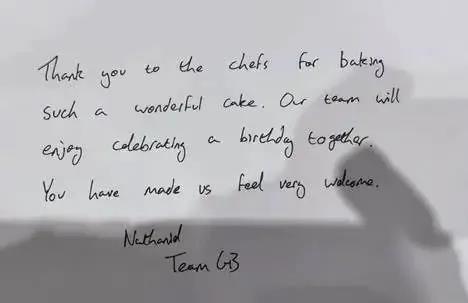 Thank you to the chefs for baking
such a wonderful cake. Our team will
enjoy celebrating a birthday together.
You have made us feel very welcome.
Nathaniel
Team GB